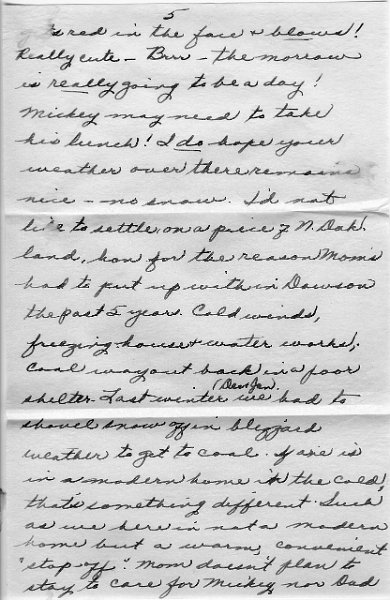 5
gets red in the face & blows!
Really cute – Brr – the morrow
is really going to be a day!
Mickey may need to take
his lunch! I do hope your
weather over there remains
nice – no snow. I'd not
like to settle on a piece of N. Dak.
land, hon for the reason Mom's
had to put up with in Dawson
the past 5 years. Cold winds,
freezing house & water works,
coal way out back in a poor
(Dec. Jan.
shelter. Last winter we had to
shovel snow off in blizzard
weather to get to coal. If one is
in a modern home in the cold,
that's something different. Such
as we here in not a modern
home but a warm, convenient
"stop off". Mom doesn't plan to
stay to care for Mickey, nor Dad